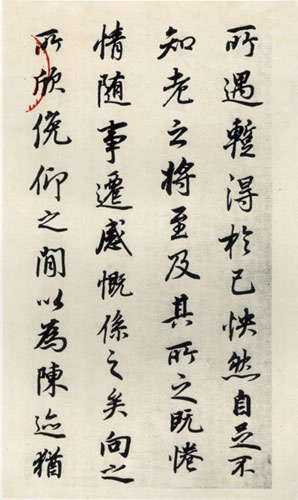 所遇暫得於己怏然自足不
知老之將至及其所之既惓
情随事遷感慨係之矣向之
所欣俛仰之間以為陳迹猶